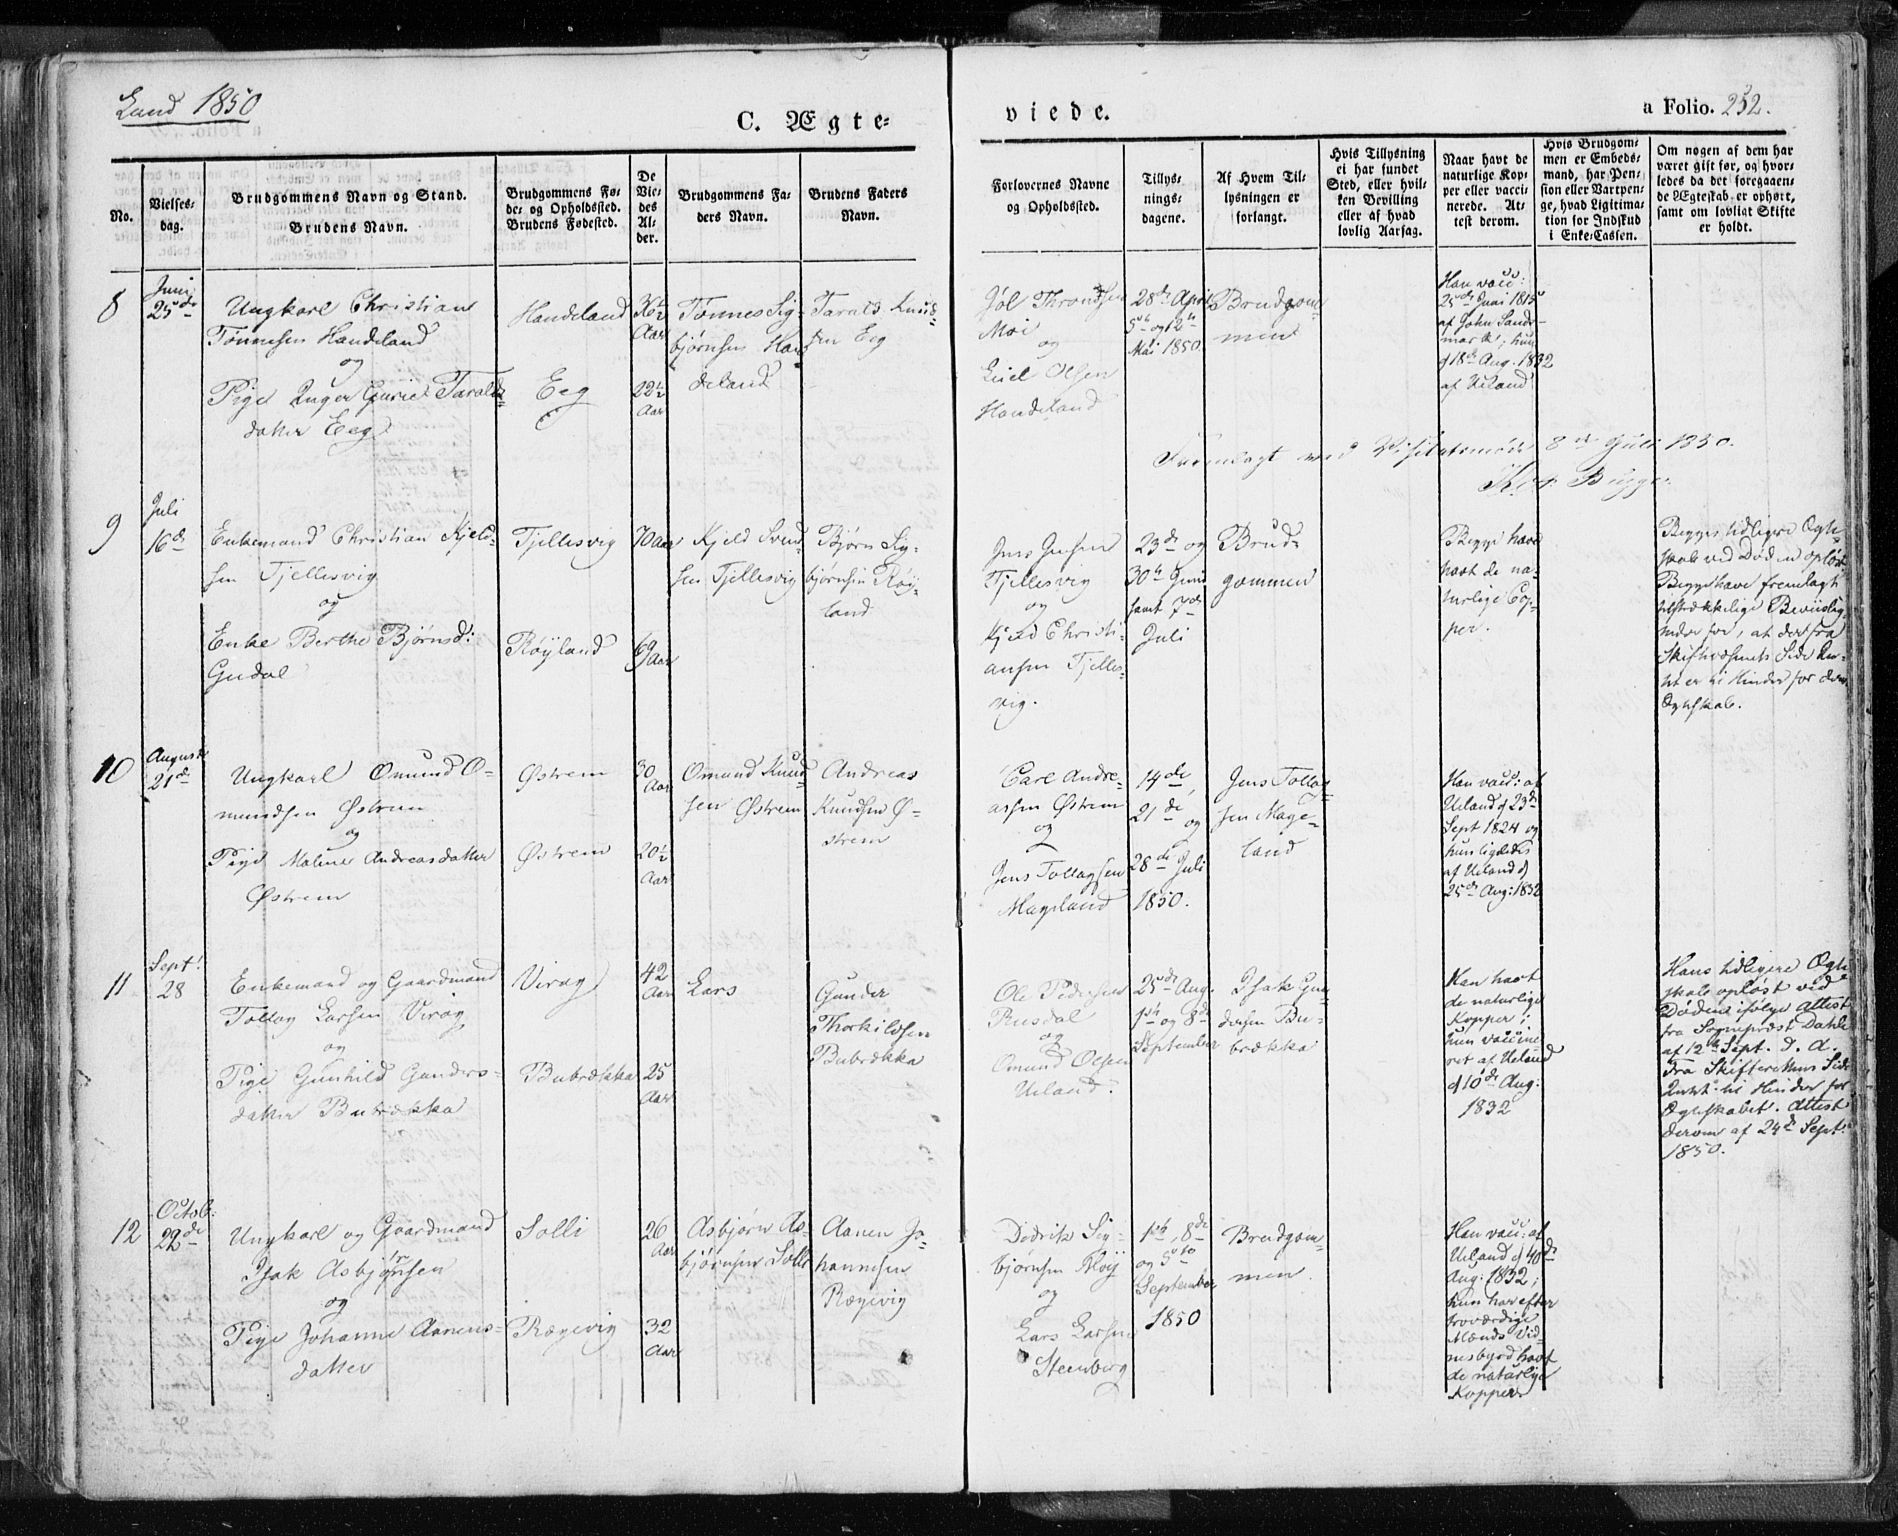 Lund 1850
C. Ægte-
viede.
a Folio. 252.
No.
Vielses-
dag.
Brudgommens Navn og Stand.
Brudens Navn.
Brudgommens Fø-
de- og Opholdssted.
Brudens Fødested.
De
Vie-
des
Al-
der.
Brudgommens Fa-
ders Navn.
Brudens Faders
Navn.
Forlovernes Navne
og Opholdssted.
Tillys-
nings-
dagene.
Af Hvem Til-
lysningen er
forlangt.
Hvis Tillysning
ei har fundet
Sted, eller hvil-
ken Bevilling
eller af hvad
lovlig Aarsag.
Naar havt de
naturlige Kop-
per eller vacci-
nerede. At-
test derom.
Hvis Brudgom-
men er Embeds-
mand, har Pen-
sion eller Vartpen-
ge, hvad Ligitima-
tion for Indskud
i Enke-Cassen.
Om nogen af dem har
været gift før, og hvor-
ledes da det foregaaen-
de Ægteskab er ophørt,
samt om lovligt Skifte
er holdt.
8
Juni
25de
Ungkarl Christian
Tønnesen Handeland
og
Pige Inger Gurie Taralds-
datter Eeg
Handeland
Eeg
36½
Aar
22½
Aar
Tønnes Sig-
bjørnsen Han-
deland
Tarald Knud-
sen Eeg
Jøl Throndsen
Moi
og
Eliel Olsen
Handeland
28de April
5te og 12te
Mai 1850
Brudgom-
men
Han vacc:
25de Juni 1815
af John Sands-
mark; hun
d 18de Aug. 1832
af Ueland
Fremlagt ved Visitatsmøde 8de Juli 1850.
Bugge.
9
Juli
16de
Enkemand Christian Kjeld-
sen Tjellesvig
og
Enke Berthe Bjørnsd:
Gudal
Tjellesvig
Røyland
70 Aar
69
Aar
Kjeld Svend-
sen Tjellesvig
Bjørn Sig-
bjørnsen Røy-
land
Jens Jensen
Tjellesvig
og
Kjeld Christi-
ansen Tjelles-
vig.
23de og
30te Juni
samt 7de
Juli
Brud-
gommen
Begge have
havt de na-
turlige Cop-
per.
Begges tidligere Ægte-
skab ved Døden opløst.
Begge have fremlagt
tilstrækkelige Beviislig-
heder for, at der fra
Skiftevæsenets Side In-
tet er til Hinder for deres
Ægteskab.
10
August
21de
Ungkarl Omund O-
mundsen Østrem
og
Pige Maline Andreasdatter
Østrem
Østrem
Østrem
30
Aar
20½
Aar
Omund Knud-
sen Østrem
Andreas
Knudsen Ø-
strem
Carl Andre-
assen Østrem
og
Jens Tollagsen
Mageland
14de,
21de
og
28de Juli
1850.
Jens Tollag-
sen Mage-
land
Han vacc: af
Ueland d 23de
Sept 1824 og
hun ligeledes
af Ueland d
25de Aug: 1832
11
Septr
28
Enkemand og Gaardmand
Tollag Larsen Virag
og
Pige Gunhild Gunders-
datter Bubrækka
Virag
Bubrækka
42
Aar
25
Aar
Lars
Gunder
Thorkildsen
Bubrækka
Ole Pedersen
Prusdal
og
Omund Olsen
Ueland.
25de Aug.
1ste og 8de
September
Isak Gun-
dersen Bu-
brækka
Han havt
de naturlige
Kopper;
hun vaccine-
ret af Ueland
d 10de Aug:
1832
Hans tidligere Ægte-
skab opløst ved
Døden ifølge Attest
fra Sognepræst Dahle
af 12te Sept. d. A.
Fra Skifterettens Side
Intet til Hinder for
Ægteskabet. Attest
derom af 24de Sept:
1850.
12
Octob:
22de
Ungkarl og Gaardmand
Isak Asbjørnsen
og
Pige Johanne Aanens-
datter
Solli
Rægevig
26
Aar
32
Aar
Asbjørn As-
bjørnsen Solli
Aanen Jo-
hannesen
Rægevig
Didrik Sig-
bjørnsen
og
Lars Larsen
Steenberg
1ste, 8de
og 15de
September
1850
Brudgom-
men.
Han vacc: af
Ueland d 10de
Aug: 1832;
hun har efter
troværdige
Mænds Vid-
nesbyrd havt
de naturlige
Kopper